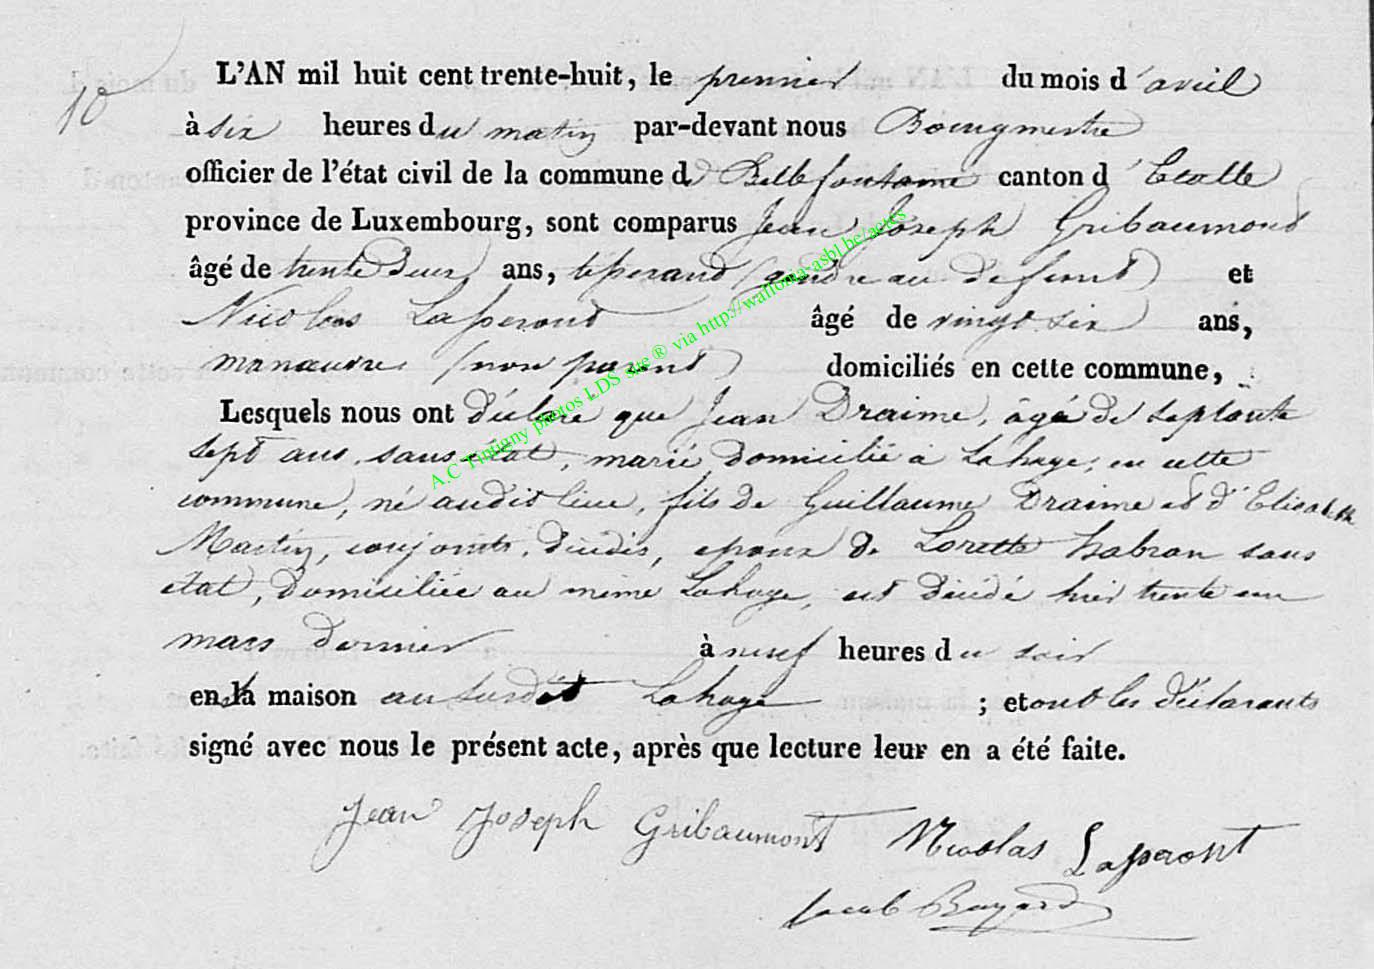 10
L'AN mil huit cent trente-huit, le premier du mois d'avril
à six heures du matin par-devant nous Bourgmestre
officier de l'état civil de la commune de Bellefontaine canton d'Etalle
province de Luxembourg, sont comparus Jean Joseph Gribaumont
âgé de trente deux ans, (gendre au defunt) et
Nicolas Laperout âgé de vingt six ans,
manœuvre (non parent) domiciliés en cette commune,
Lesquels nous ont déclaré que Jean Draime, âgé de septante
sept ans, sans état, marié, domicilié à Lahage, en cette
commune, né audit lieu, fils de Guillaume Draime et d'Elisabeth
Martin, conjoints, décédés, epoux de Lorette habran sans
etat, domiciliée au même Lahage, est décédé hier trente un
mars dernier à neuf heures du soir
en sa maison au susdit Lahage ; et ont les déclarants
signé avec nous le présent acte, après que lecture leur en a été faite.
Jean Joseph Gribaumont Nicolas Lapront
Jacob Bayard
A.C Tintigny photos LDS site ® via http://wallonia-asbl.be/actes